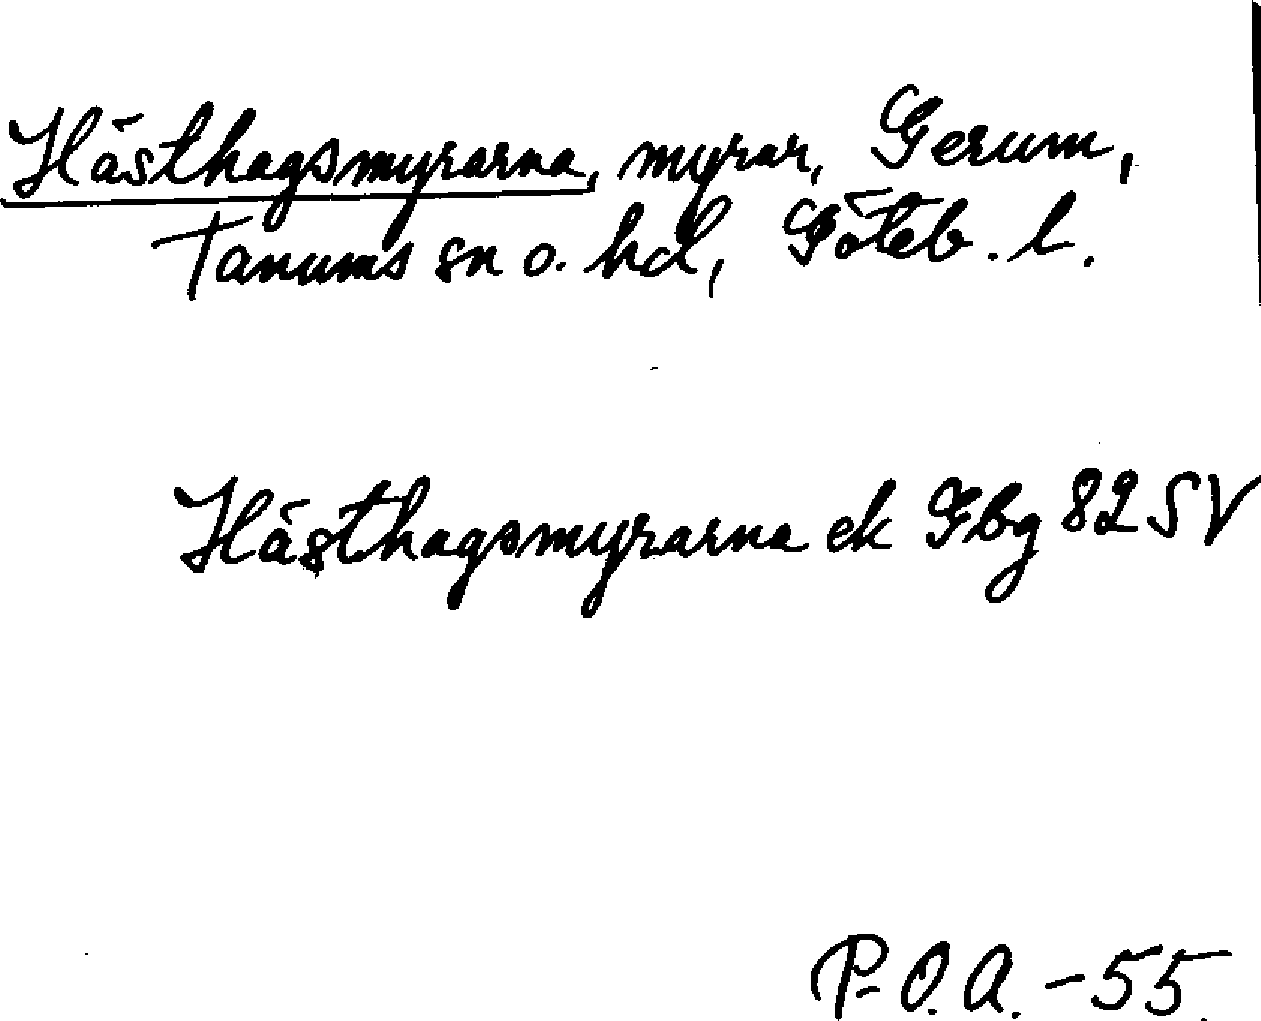 Hästhagsmyrarna, myrar, Gerum,
Tanums sn o. hd, Göteb. l.
Hästhagsmyrarna ek Gbg 82 SV
P-O.A. -55.